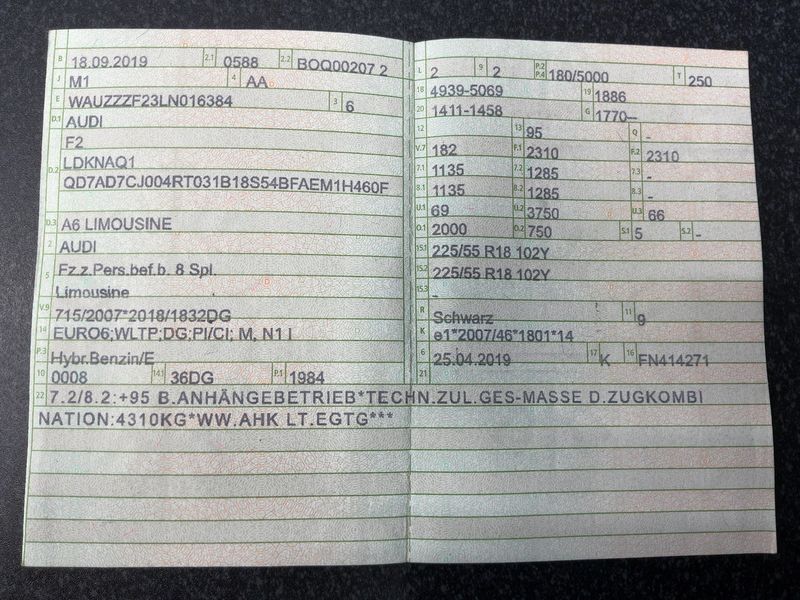 B 18.09.2019 2.1 0588 2.2 BOQ00207 2
J M1 4 AA
E WAUZZZF23LN016384 3 6
D.1 AUDI
F2
D.2 LDKNAQ1
QD7AD7CJ004RT031B18S54BFAEM1H460F
D.3 A6 LIMOUSINE
2 AUDI
5 Fz.z.Pers.bef.b. 8 Spl.
Limousine
V.9 715/2007*2018/1832DG
14 EURO6;WLTP;DG;PI/CI; M, N1 I
P.3 Hybr.Benzin/E
10 0008 14.1 36DG P.1 1984
L 2 9 2 P.2 P.4 180/5000 T 250
18 4939-5069 19 1886
20 1411-1458 G 1770--
12 13 95 Q -
V.7 182 F.1 2310 F.2 2310
7.1 1135 7.2 1285 7.3 -
8.1 1135 8.2 1285 8.3 -
U.1 69 U.2 3750 U.3 66
O.1 2000 O.2 750 S.1 5 S.2 -
15.1 225/55 R18 102Y
15.2 225/55 R18 102Y
15.3 -
R Schwarz 11 9
K e1*2007/46*1801*14
6 25.04.2019 17 K 16 FN414271
21
22 7.2/8.2:+95 B.ANHÄNGEBETRIEB*TECHN.ZUL.GES-MASSE D.ZUGKOMBI
NATION:4310KG*WW.AHK LT.EGTG***